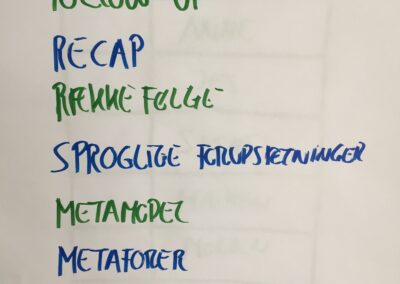 FOLLOW-UP
RECAP
RÆKKEFØLGE
SPROGLIGE FORUDSÆTNINGER
METAMODEL
METAFORER